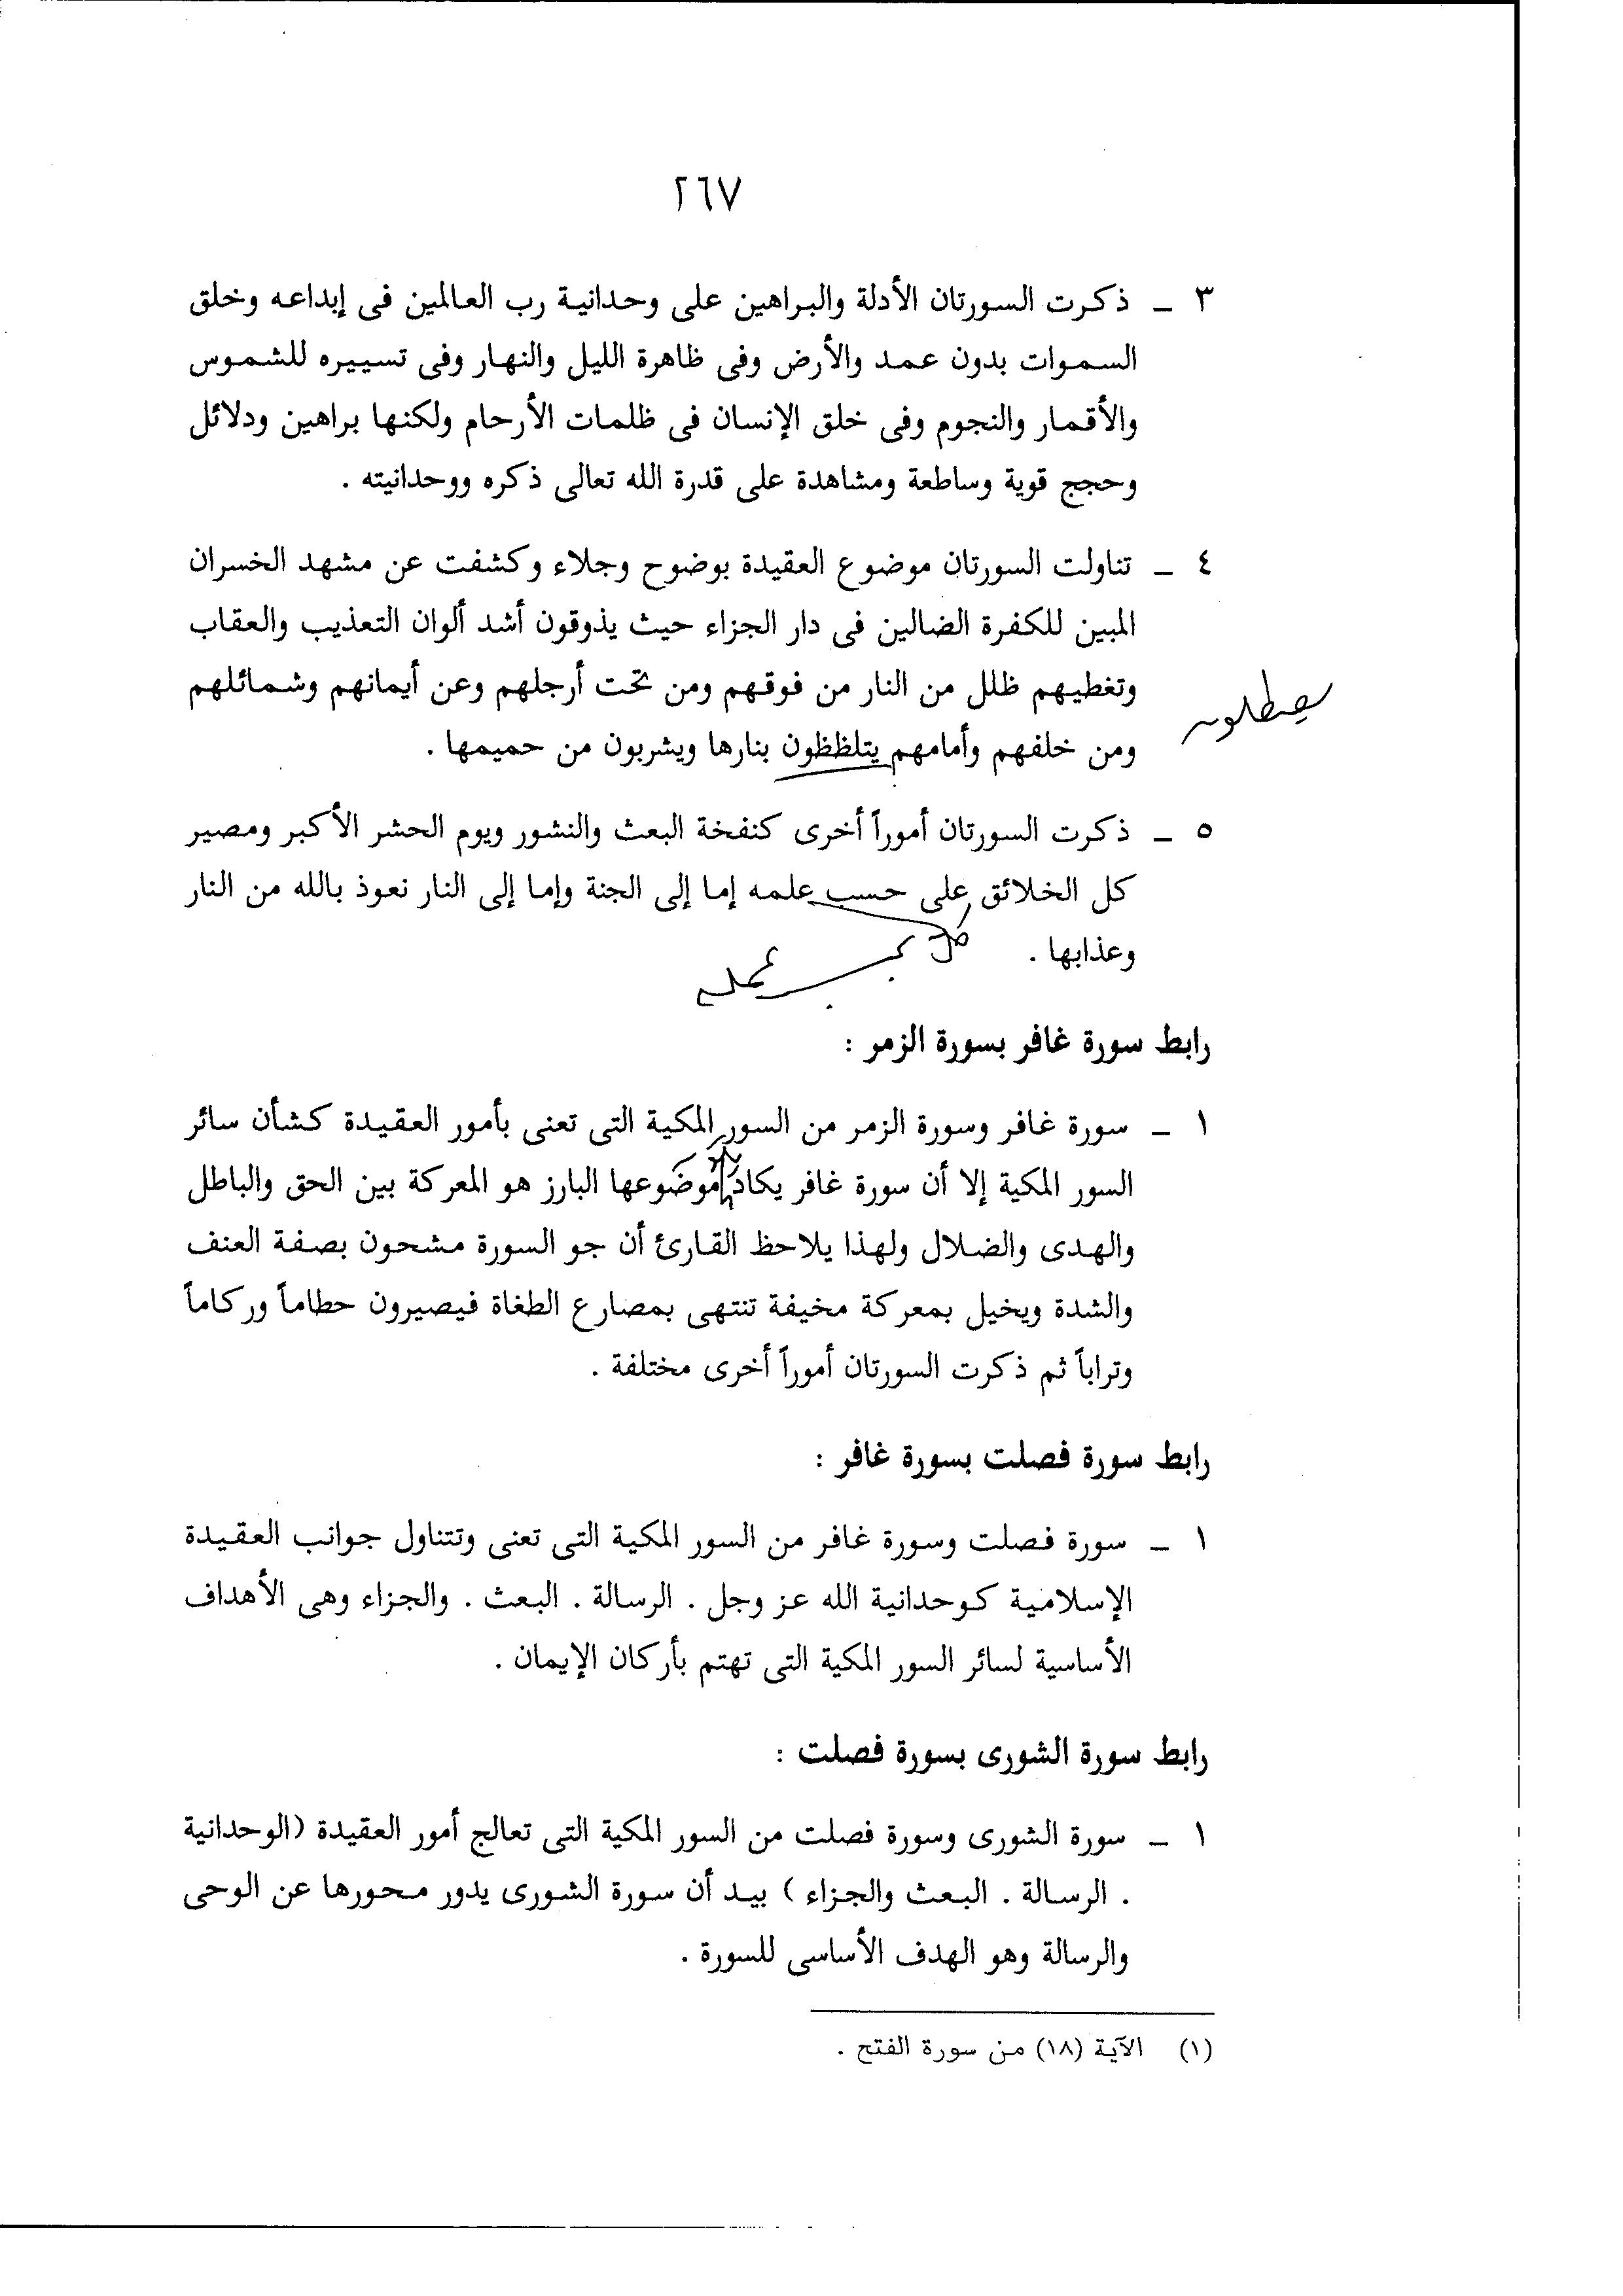 ٢٦٧
٣ ـ ذكرت السورتان الأدلة والبراهين على وحدانية رب العالمين فى إبداعه وخلق
السموات بدون عمد والأرض وفى ظاهرة الليل والنهار وفى تسييره للشموس
والأقمار والنجوم وفى خلق الإنسان فى ظلمات الأرحام ولكنها براهين ودلائل
وحجج قوية وساطعة ومشاهدة على قدرة الله تعالى ذكره ووحدانيته .
٤ ـ تناولت السورتان موضوع العقيدة بوضوح وجلاء وكشفت عن مشهد الخسران
المبين للكفرة الضالين فى دار الجزاء حيث يذوقون أشد ألوان التعذيب والعقاب
وتغطيهم ظلل من النار من فوقهم ومن تحت أرجلهم وعن أيمانهم وشمائلهم
يصطلون
ومن خلفهم وأمامهم يتلظظون بنارها ويشربون من حميمها .
٥ ـ ذكرت السورتان أموراً أخرى كنفخة البعث والنشور ويوم الحشر الأكبر ومصير
كل الخلائق على حسب علمه إما إلى الجنة وإما إلى النار نعوذ بالله من النار
وعذابها .
كل بحسب عمله
رابط سورة غافر بسورة الزمر :
١ ـ سورة غافر وسورة الزمر من السور المكية التى تعنى بأمور العقيدة كشأن سائر
السور المكية إلا أن سورة غافر يكاد موضوعها البارز هو المعركة بين الحق والباطل
والهدى والضلال ولهذا يلاحظ القارئ أن جو السورة مشحون بصفة العنف
والشدة ويخيل بمعركة مخيفة تنتهى بمصارع الطغاة فيصيرون حطاماً وركاماً
وتراباً ثم ذكرت السورتان أموراً أخرى مختلفة .
رابط سورة فصلت بسورة غافر :
١ ـ سورة فصلت وسورة غافر من السور المكية التى تعنى وتتناول جوانب العقيدة
الإسلامية كوحدانية الله عز وجل . الرسالة . البعث . والجزاء وهى الأهداف
الأساسية لسائر السور المكية التى تهتم بأركان الإيمان .
رابط سورة الشورى بسورة فصلت :
١ ـ سورة الشورى وسورة فصلت من السور المكية التى تعالج أمور العقيدة (الوحدانية
. الرسالة . البعث والجزاء ) بيد أن سورة الشورى يدور محورها عن الوحى
والرسالة وهو الهدف الأساسى للسورة .
(١) الآية (١٨) من سورة الفتح .